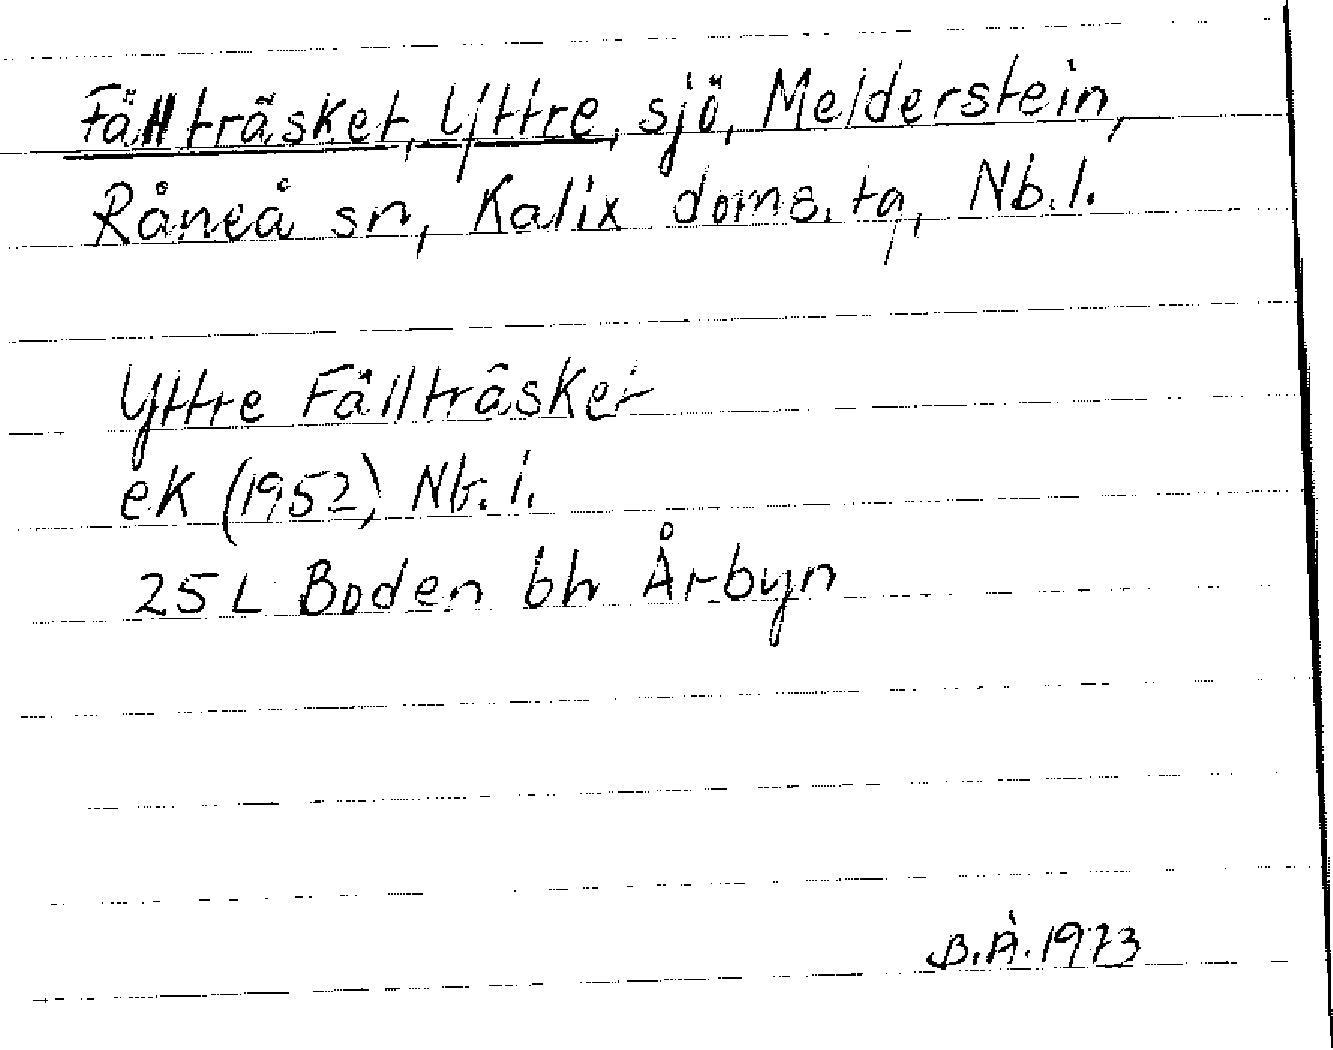 Fällträsket, Yttre, sjö, Melderstein,
Råneå sn, Kalix doms.tg, Nb.l.
Yttre Fällträsket
eK (1952) Nb.l.
25 L Boden bh Årbyn
B.Å. 1973